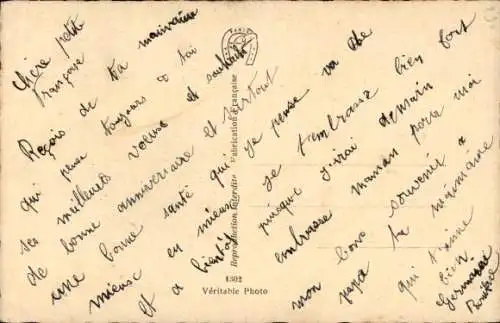 Chère petite
Françoise
Reçois de ta marraine
qui pense toujours à toi
ses meilleurs voeux et souhaits
de bonne anniversaire et surtout
une bonne santé qui je pense va de
mieux en mieux je t'embrasse bien fort
et a bientôt puisque j'irai demain
embrasse maman pour moi
mon bons souvenir a
papa ta minimaine
qui t'aime
bien
Germaine
PARIS
Fabrication Française
Reproduction Interdite
1302
Véritable Photo